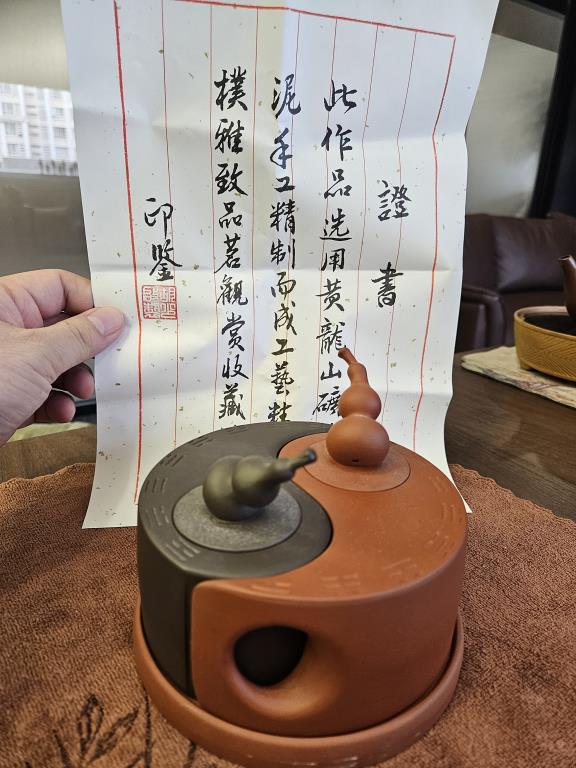 證書
此作品选用黄龍山礦
泥手工精制而成工藝
樸雅致品茗觀賞收藏
印鑒